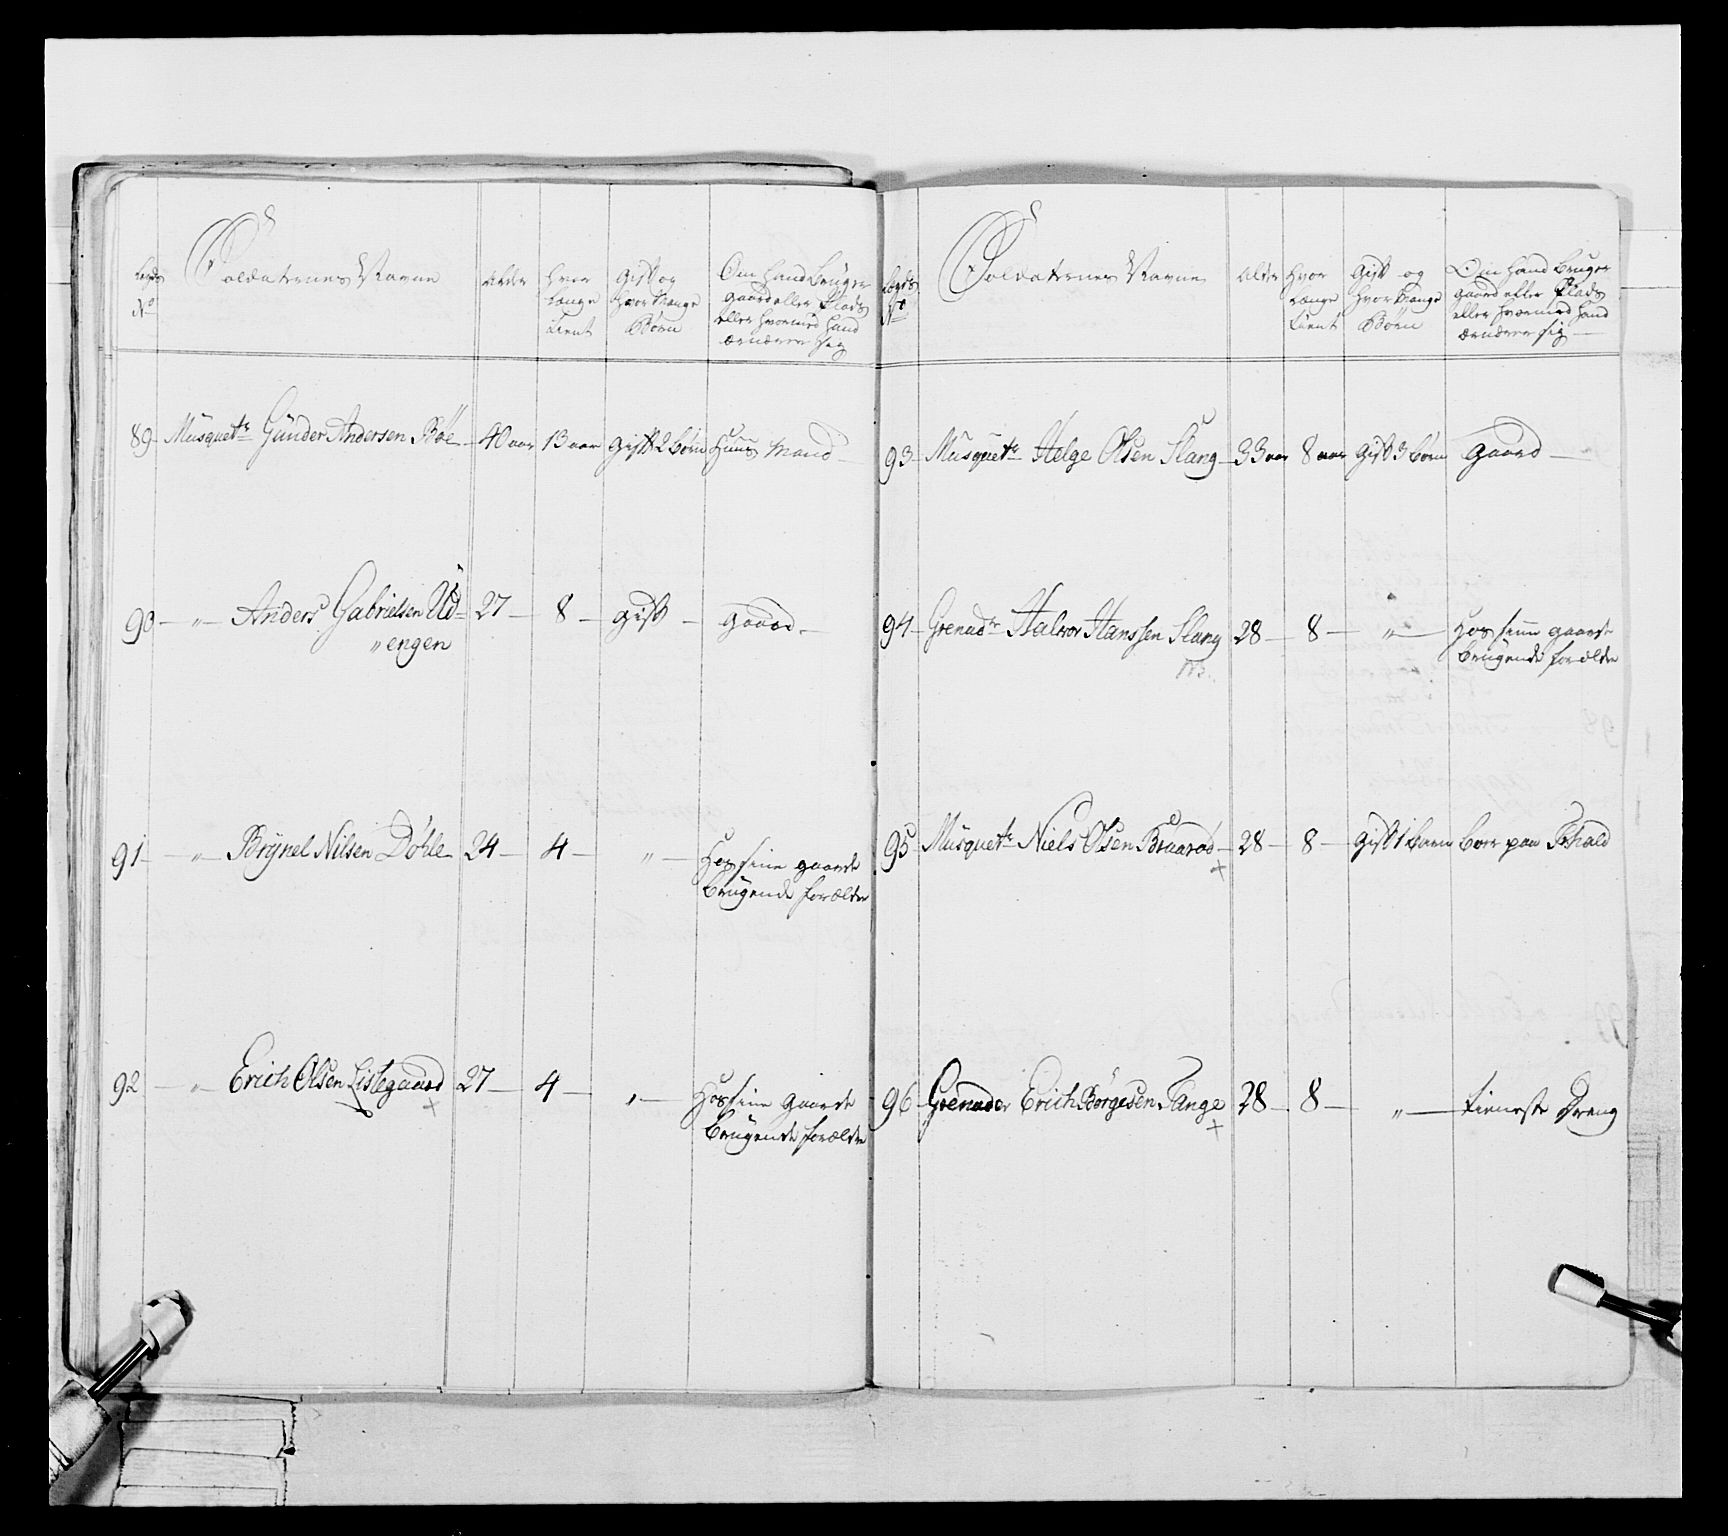 Legds No
Soldaternes Navne
Alder
Hvor Længe tient
Gift og Hvor Mange Børn
Om Hand Bruger
gaard eller Plads
eller Hvormed Hand
ærnærer sig
89 Musquetr Gunder Andersen Bøe 40 aar 13 aar gift 2 børn Huus Mand
90 " Anders Gabrielsen Ud 27 8 gift gaard
"engen
91 " Brynel Nilsen Döhle 24 4 " Hos sine gaard
brugende forældre
92 " Erich Olsen Lislegaard 27 4 " Hos sine gaard
brugende forældre
Legds No
Soldaternes Navne
Alder
Hvor Længe tient
Gift og Hvor Mange Børn
Om Hand Bruger
gaard eller Plads
eller Hvormed Hand
ærnærer sig
93 Musquetr Helge Olsen Slang 33 aar 8 aar gift 3 børn gaard
94 Grenadr Halvor Hanssen Slang 28 8 " Hos sine gaard
brugende forældre
95 Musquetr Niels Olsen Braarød 28 8 gift 1 barn boer paa
+
96 Grenader Erich Börgesen Tange 28 8 " tieneste Dreng
+